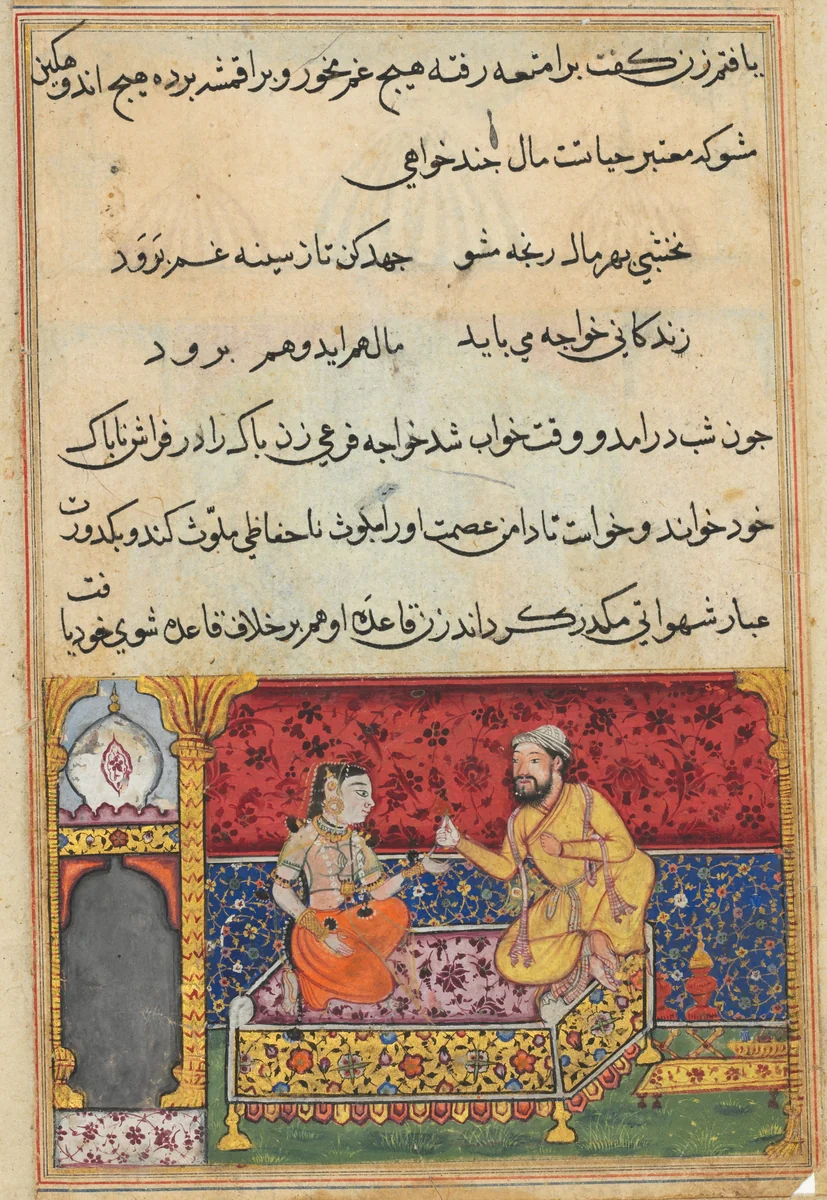 یافتم زن کفت بر امتعه رفته هیج غم مخور و بر اقمشه برده هیج اندوهکین
مشو که معتبر حیاتست مال جند خواهی
نخشبی بهر مال رنجه مشو جهد کن تا ز سینه غم بَرَوَد
زندکانی خواجه می باید مال هم اید و هم برود
جون شب درامد و وقت خواب شد خواجه فرعی زن باک را در فراش ناباک
خود خواند و خواست تا دامن عصمت او را بلوث نا حفاظی ملوّث کند و بکدورت
غبار شهواتی مکدر کرداند زن قاعدَه او هم بر خلاف قاعده شوی خود یافت